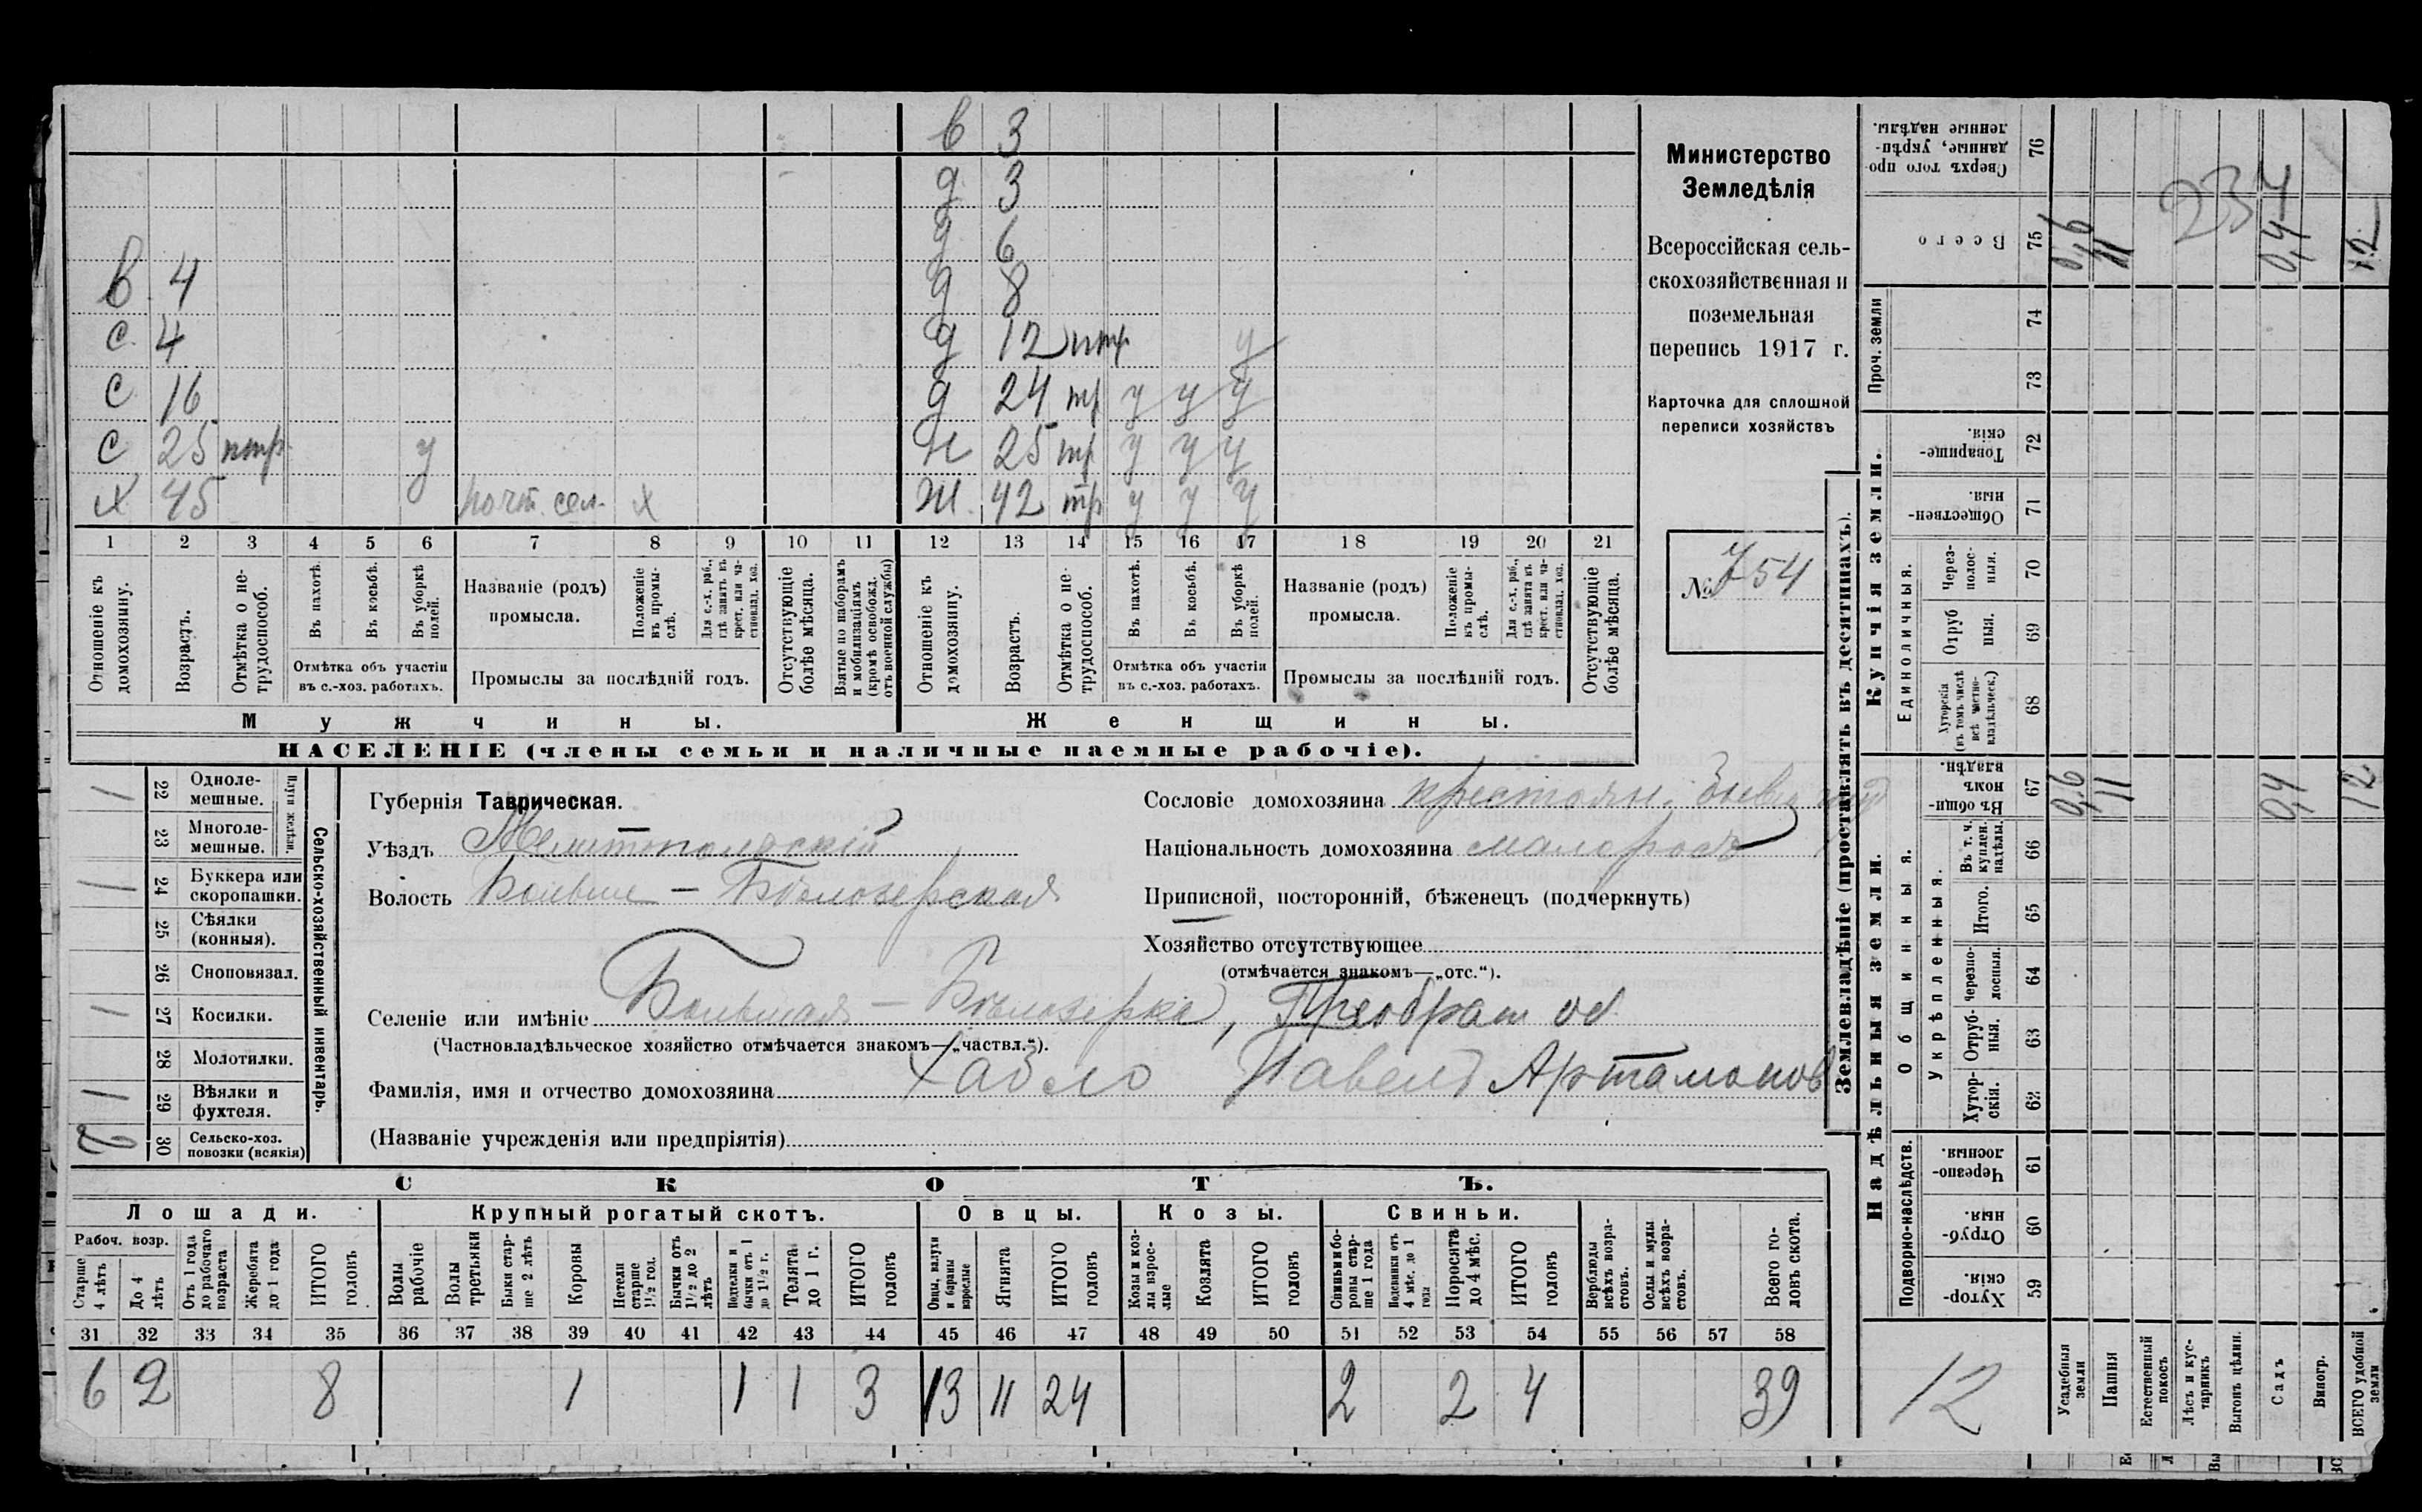 в 3
д 3
д 6
в 4 д 8
с 4 д 12 нтр у
с 16 д 24 тр у у у
с 25 нтр у н 25 тр у у у
х 45 у почт. сел. х ж. 42 тр у у у
1 2 3 4 5 6 7 8 9 10 11 12 13 14 15 16 17 18 19 20 21
Отношеніе къ домохозяину.
Возрастъ.
Отмѣтка о нетрудоспособ.
Въ пахотѣ.
Въ косьбѣ.
Въ уборкѣ полей.
Отмѣтка объ участіи
въ с.-хоз. работахъ.
Названіе (родъ)
промысла.
Положеніе въ промыслѣ.
Для с.-х. раб., гдѣ занятъ въ крест. или частновлад. хоз.
Промыслы за послѣдній годъ.
Отсутствующіе болѣе мѣсяца.
Взятые по наборамъ и мобилизаціямъ (кромѣ освобожд. отъ военной службы)
Отношеніе къ домохозяину.
Возрастъ.
Отмѣтка о нетрудоспособ.
Въ пахотѣ.
Въ косьбѣ.
Въ уборкѣ полей.
Отмѣтка объ участіи
въ с.-хоз. работахъ.
Названіе (родъ)
промысла.
Положеніе къ промыслѣ.
Для с.-х. раб., гдѣ занята въ крест. или частновлад. хоз.
Промыслы за послѣдній годъ.
Отсутствующіе болѣе мѣсяца.
Мужчины. Женщины.
НАСЕЛЕНІЕ (члены семьи и наличные наемные рабочіе).
Министерство
Земледѣлія
Всероссійская сель-
скохозяйственная и
поземельная
перепись 1917 г.
Карточка для сплошной
переписи хозяйствъ
№ 754
Сельско-хозяйственный инвентарь.
Плуги желѣзн.
1 22 Одноле-
мешные.
23 Многоле-
мешные.
1 24 Буккера или
скоропашки.
25 Сѣялки
(конныя).
26 Сноповязал.
1 27 Косилки.
28 Молотилки.
1 29 Вѣялки и
фухтеля.
2 30 Сельско-хоз.
повозки (всякія)
Губернія Таврическая.
Уѣздъ Мелитопольскій
Волость Больше - Бѣлозерская
Сословіе домохозяина крестьян.
Національность домохозяина малоросъ
Приписной, посторонній, бѣженецъ (подчеркнуть)
Хозяйство отсутствующее
(отмѣчается знакомъ—„отс.“).
Селеніе или имѣніе Большая - Бѣлозерка, Преображ об
(Частновладѣльческое хозяйство отмѣчается знакомъ—„частвл.“).
Фамилія, имя и отчество домохозяина Хабло Павелъ Артамонов
(Названіе учрежденія или предпріятія)
СКОТЪ.
Лошади. Крупный рогатый скотъ. Овцы. Козы. Свиньи.
Рабоч. возр.
Старше 4 лѣтъ
До 4 лѣтъ
Отъ 1 года до рабочаго возраста
Жеребята до 1 года
ИТОГО головъ
Волы рабочіе
Волы третьяки
Быки старше 2 лѣтъ
Коровы
Нетели старше 1½ год.
Бычки отъ 1½ до 2 лѣтъ
Подтелки и бычки отъ 1 до 1½ г.
Телята до 1 г.
ИТОГО головъ
Овцы, валухи и бараны взрослые
Ягнята
ИТОГО головъ
Козы и козлы взрослые
Козлята
ИТОГО головъ
Свиньи и боровы старше 1 года
Подсвинки отъ 4 мѣс. до 1 года
Поросята до 4 мѣс.
ИТОГО головъ
Верблюды всѣхъ возрастовъ.
Ослы и мулы всѣхъ возрастовъ.
Всего головъ скота.
31 32 33 34 35 36 37 38 39 40 41 42 43 44 45 46 47 48 49 50 51 52 53 54 55 56 57 58
6 2 8 1 1 1 3 13 11 24 2 2 4 39
Землевладѣніе (проставлять въ десятинахъ).
Купчія земли.
Сверхъ того проданные, укрѣпленные надѣлы. 76
Всего 75 0,6 11 0,4 12
234
Проч. земли 74 73
Товарищескія. 72
Общественныя. 71
Единоличныя.
Черезполосныя. 70
Отрубныя. 69
Хуторскія (въ томъ числѣ всѣ частновладѣльческ.) 68
Надѣльныя земли.
Общинныя.
Въ общинномъ владѣн. 67 0,6 11 0,4 12
Укрѣпленныя.
Въ т. ч. куплен. надѣлы. 66
Итого. 65
Черезполосныя. 64
Отрубныя. 63
Хуторскія. 62
Подворно-наслѣдств.
Черезполосныя. 61
Отрубныя. 60
Хуторскія. 59
12
Усадебныя земли
Пашня
Естественный покосъ
Лѣсъ и кустарникъ
Выгонъ цѣлин.
Садъ
Виногр.
ВСЕГО удобной земли